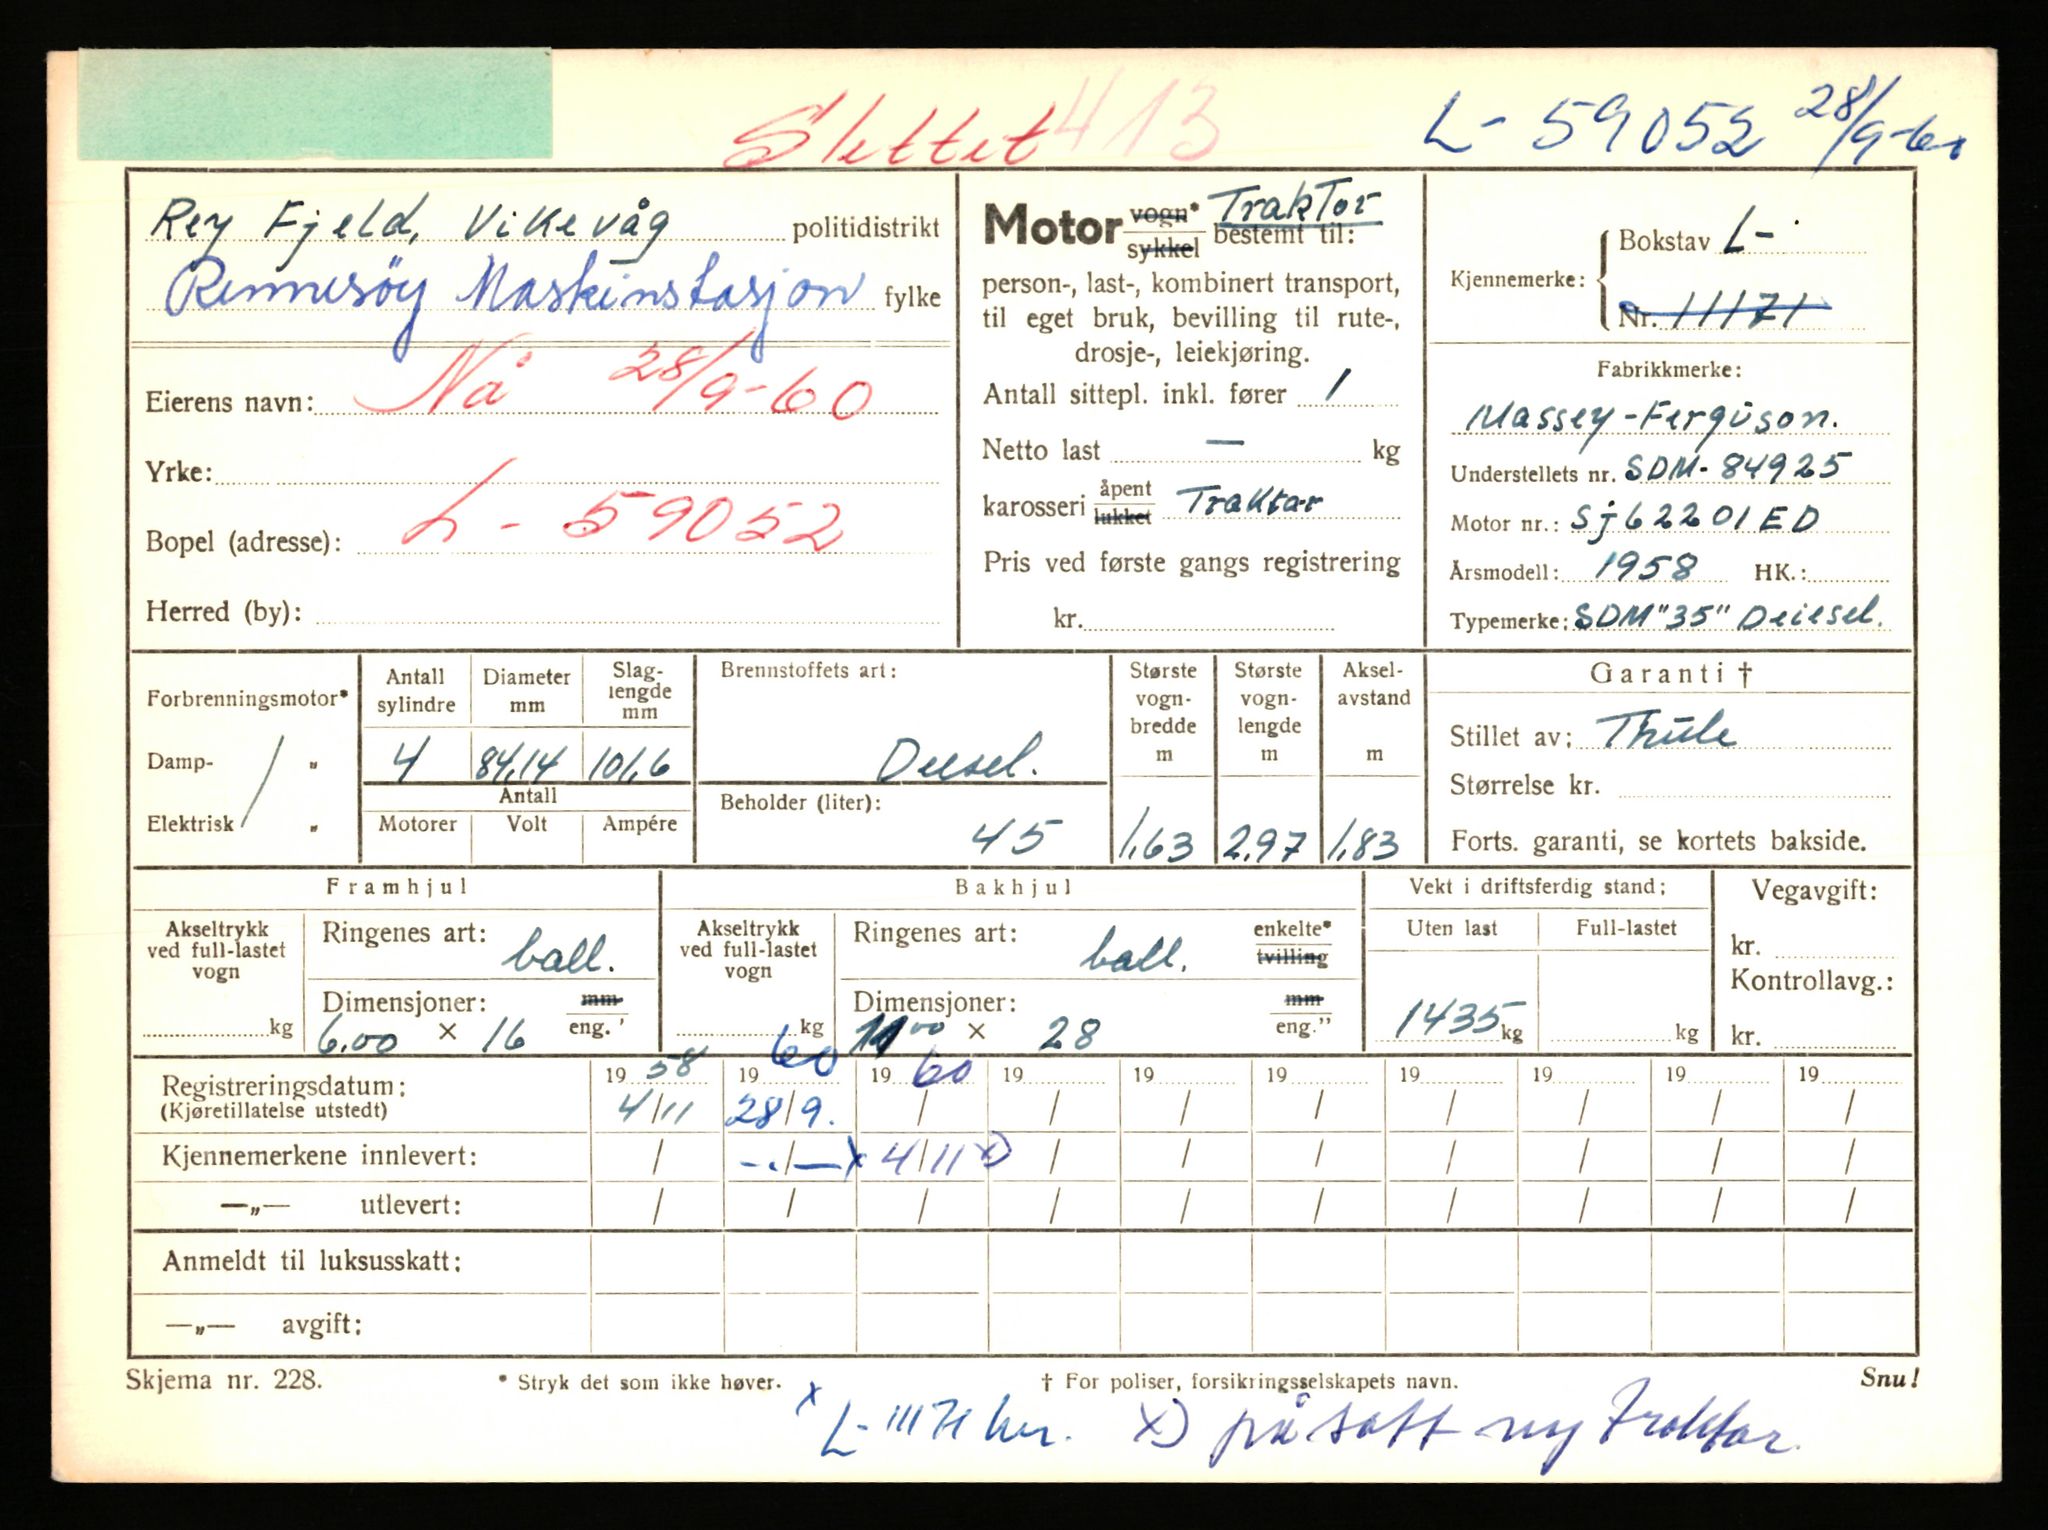 Slettet 413 L- 59052 28/9-60
Rey Fjeld, Vikevåg politidistrikt
Rennesöy Maskinstasjon fylke
Nå 28/9-60
Eierens navn:
Yrke:
L- 59052
Bopel (adresse):
Herred (by):
Motor vogn* sykkel Traktor bestemt til:
person-, last-, kombinert transport,
til eget bruk, bevilling til rute-,
drosje-, leiekjøring.
Antall sittepl. inkl. fører 1
Netto last — kg
karosseri åpent lukket Traktor
Pris ved første gangs registrering
kr.
Kjennemerke: Bokstav L-
Nr. 11171
Fabrikkmerke:
Massey-Ferguson.
Understellets nr. SDM-84925
Motor nr.: Sj62201ED
Årsmodell: 1958 HK.:
Typemerke: SDM "35" Deiesel.
Forbrenningsmotor*
Damp- „
Elektrisk „
Antall sylindre
Diameter mm
Slag-lengde mm
4 84,14 101,6
Antall
Motorer Volt Ampére
Brennstoffets art:
Deesel.
Beholder (liter):
45
Største vogn-bredde m
1,63
Største vogn-lengde m
2,97
Aksel-avstand m
1,83
Garanti †
Stillet av: Thule
Størrelse kr.
Forts. garanti, se kortets bakside.
Framhjul
Akseltrykk ved full-lastet vogn
kg
Ringenes art: ball.
Dimensjoner: mm
6.00 × 16 eng. '
Bakhjul
Akseltrykk ved full-lastet vogn
kg
Ringenes art: ball. enkelte* tvilling
Dimensjoner: mm
11 00 × 28 eng."
Vekt i driftsferdig stand:
Uten last Full-lastet
1435 kg kg
Vegavgift:
kr.
Kontrollavg.:
kr.
Registreringsdatum: 19 58 19 60 19 60 19 19 19 19 19 19 19
(Kjøretillatelse utstedt) 4/11 28/9. / / / / / / / /
Kjennemerkene innlevert: / —/—x 4/11 x) / / / / / / /
—„— utlevert: / / / / / / / / / /
Anmeldt til luksusskatt:
—„— avgift:
Skjema nr. 228. * Stryk det som ikke høver. † For poliser, forsikringsselskapets navn. Snu!
x L-11171 her. x) påsatt ny traktor.